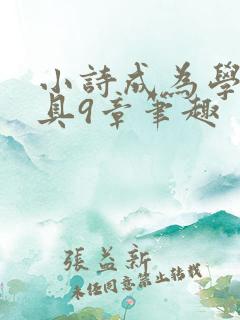 小詩成為學
具9章筆趣
張益新
未經同意禁止轉載